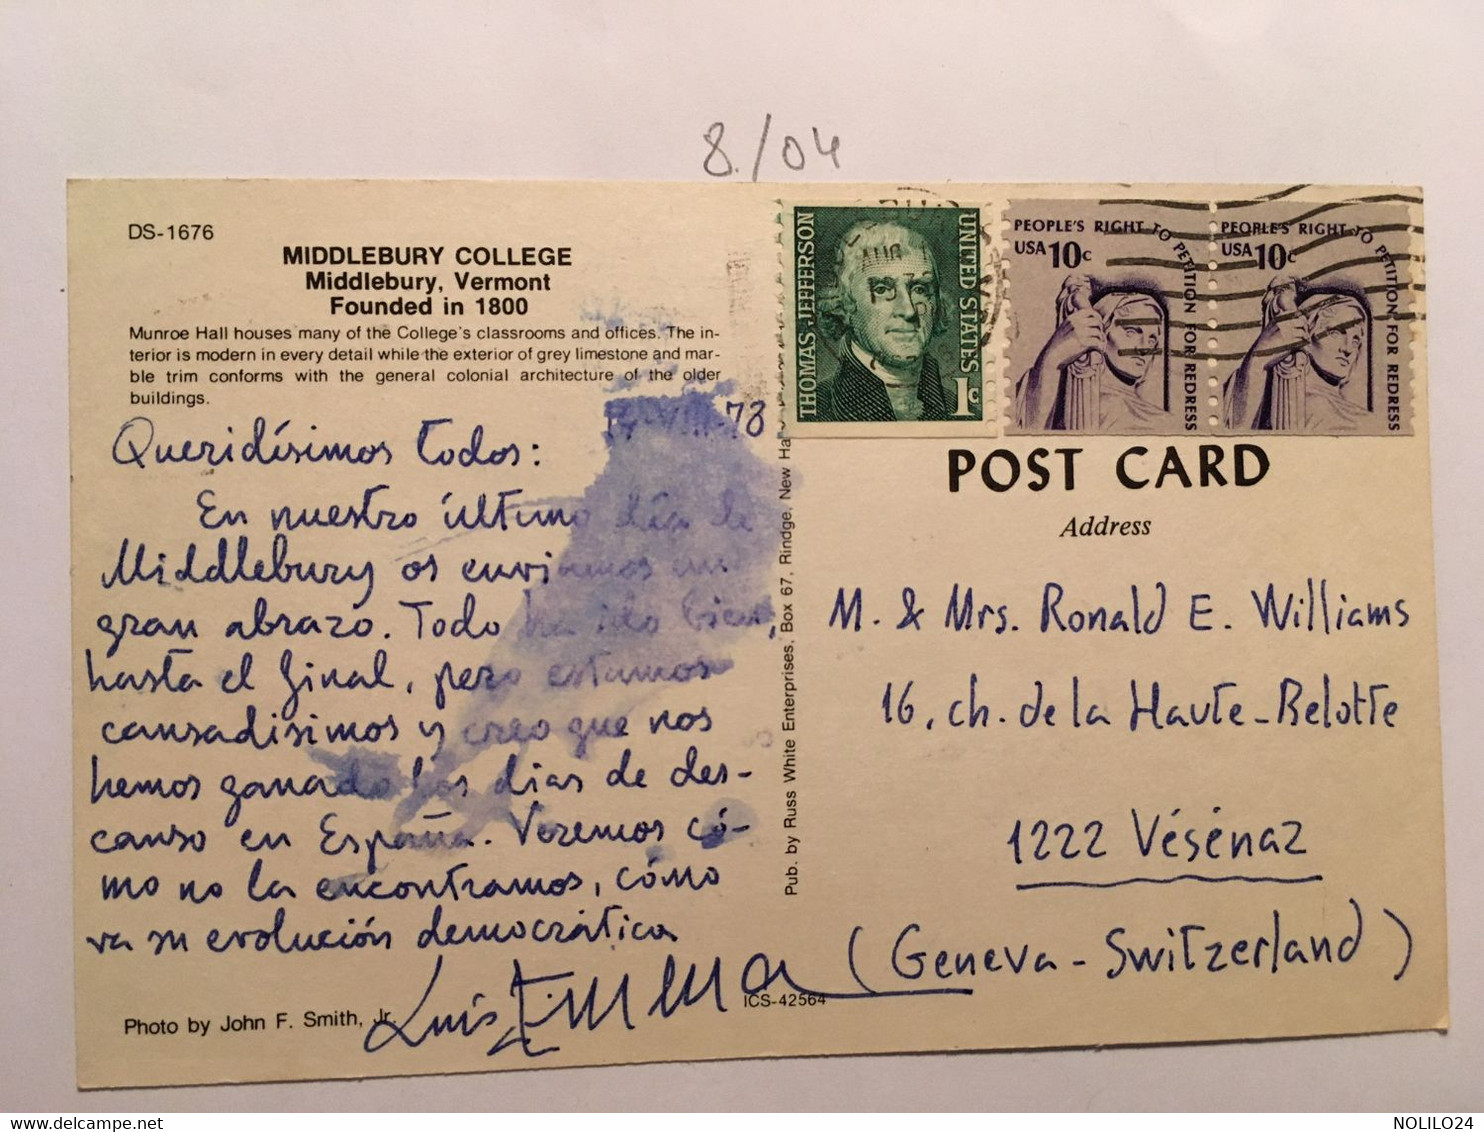 8./04
DS-1676
MIDDLEBURY COLLEGE
Middlebury, Vermont
Founded in 1800
Munroe Hall houses many of the College's classrooms and offices. The in-
terior is modern in every detail while the exterior of grey limestone and mar-
ble trim conforms with the general colonial architecture of the older
buildings.
17-VIII-78
Queridísimos todos:
En nuestro último día de
Middlebury os enviamos un
gran abrazo. Todo ha ido bien,
hasta el final, pero estamos
cansadisimos y creo que nos
hemos ganado los dias de des-
canso en España. Veremos có-
mo no la encontramos, cómo
va su evolución democrática
Luis
Photo by John F. Smith, Jr.
ICS-42564
Pub. by Russ White Enterprises, Box 67, Rindge, New Ha
THOMAS JEFFERSON
UNITED STATES
1c
AUG
PEOPLE'S RIGHT TO PETITION FOR REDRESS
USA 10c
PEOPLE'S RIGHT TO PETITION FOR REDRESS
USA 10c
POST CARD
Address
M. & Mrs. Ronald E. Williams
16, ch. de la Haute-Belotte
1222 Vésénaz
(Geneva - Switzerland)
NOLILO24